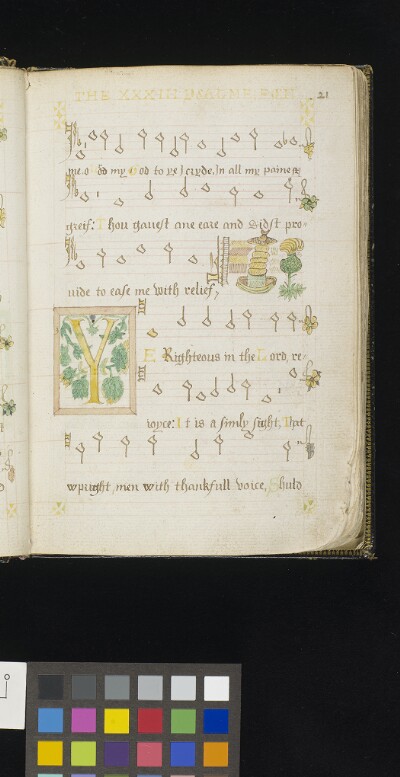 THE XXXIII PSALME
21
me. o my God to ye I cryde, In all my paine &
greif: Thou gauest ane eare and didst pro-
uide to ease me with relief,
YE Righteous in the Lord, re-
ioyce: It is a simly sight, That
wpright men with thankfull voice, Shuld